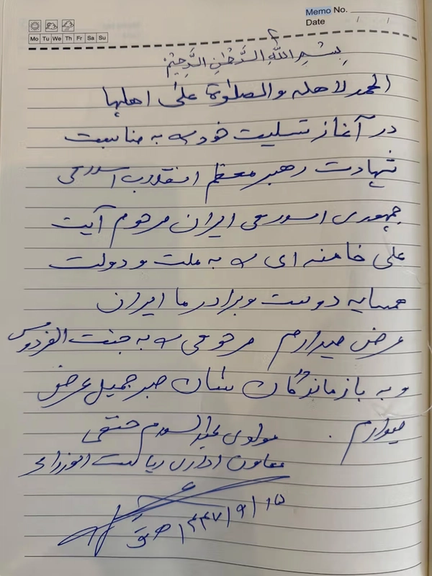 Memo No.
Date / /
Mo Tu We Th Fr Sa Su
بسم الله الرحمن الرحیم
الحمد لاهله والصلوة علی اهلها
در آغاز تسلیت خود را به مناسبت
شهادت رهبر معظم انقلاب اسلامی
جمهوری اسلامی ایران مرحوم آیت
علی خامنه ای را به ملت و دولت
همسایه دوست و برادر ما ایران
عرض میدارم مرحومی را به جنت الفردوس
و به بازماندگان شان صبر جمیل عرض
میدارم .
مولوی عبدالسلام حنفی
معاون اداری ریاست الوزراء
۱۴۴۷/۹/۱۵ هـ ق